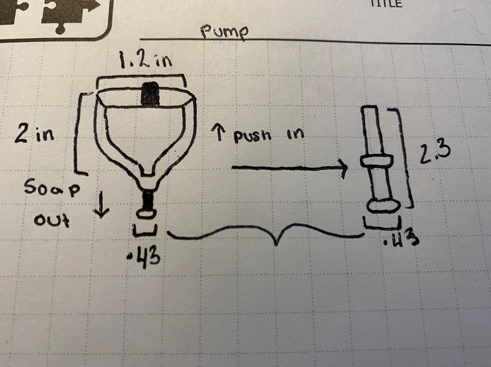 TITLE
Pump
1.2 in
2 in
↑ push in
2.3
Soap
out ↓
.43
.43